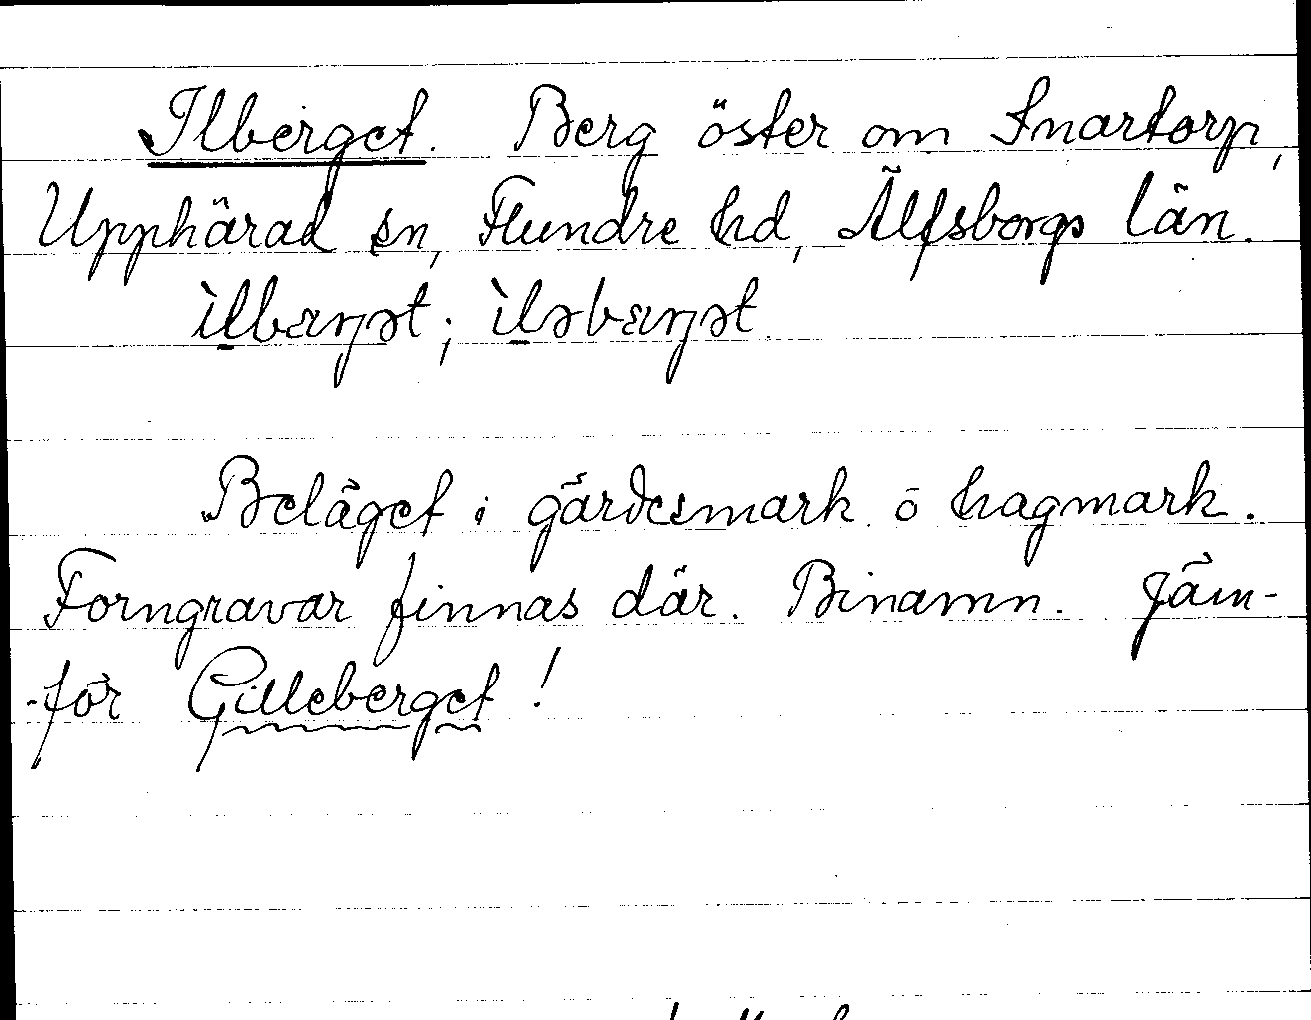 Ilberget. Berg öster om Snartorp,
Upphärad sn, Flundre hd, Älfsborgs län.
ìlbærjət; ìləbærjət.
Beläget i gärdesmark o hagmark.
Forngravar finnas där. Binamn. Jäm-
-för Gilleberget!